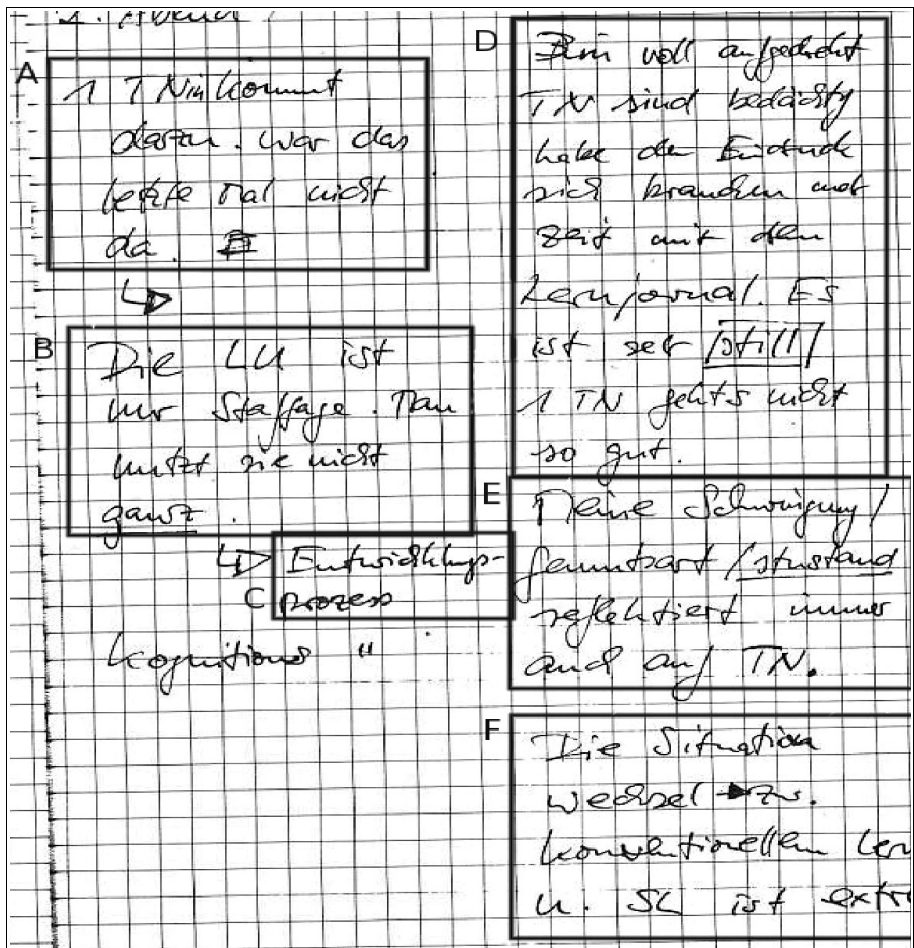 1. Abend
A
1 TNin kommt
dazu. war das
letzte Mal nicht
da.
B
Die LU ist
nur Staffage. Man
nutzt sie nicht
ganz.
C
Entwicklungs-
prozess
Kognitions "
D
Bin voll aufgedreht
TN sind bedächtig
habe den Eindruck
sich brauchen mehr
Zeit mit den
Lernjornal. Es
ist ser /still/
1 TN geht's nicht
so gut.
E
Meine Schwingung/
/
reflektiert immer
auch auf TN.
F
Die Situation
wechsel → zw.
konventionellem Ler
u. SL ist extr